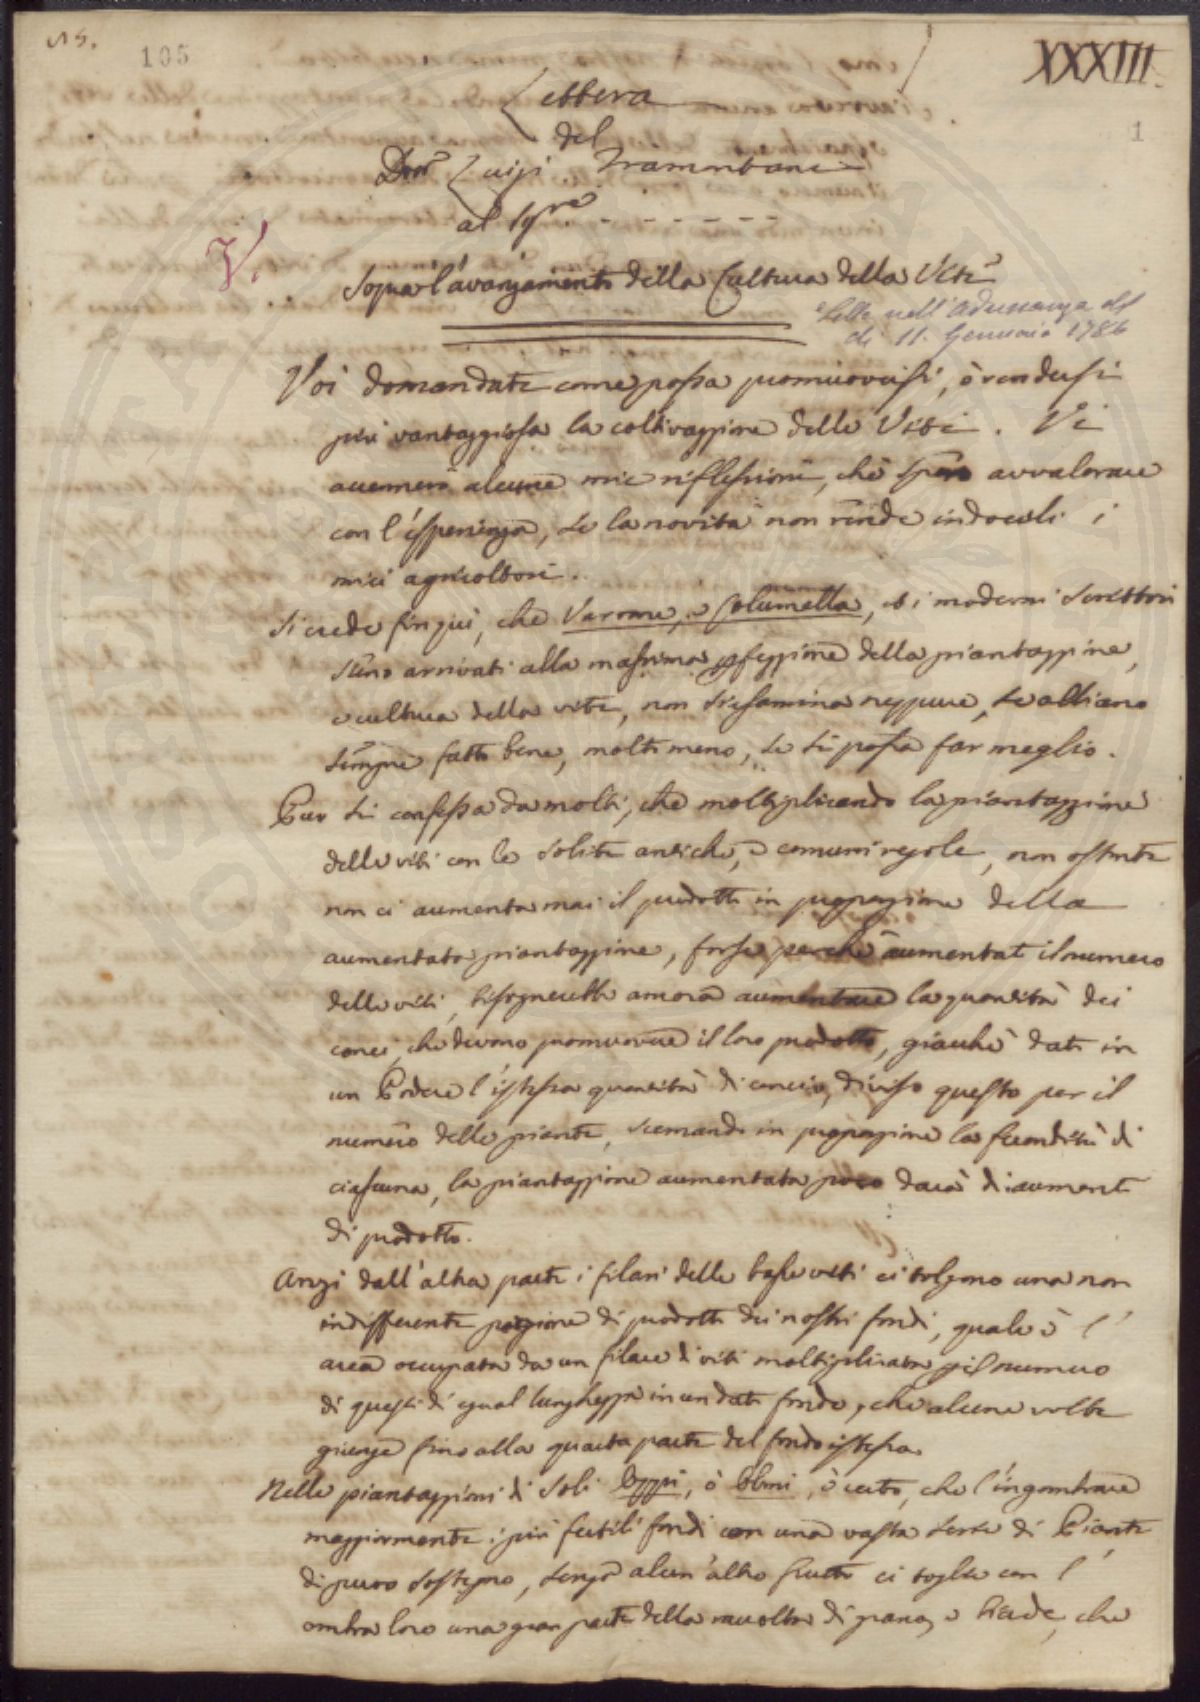 105
XXXIII
1
Lettera
del
Dott.r Luigi Tramontani
al Sig.re - - - - - - -
V.
Sopra l'avanzamento della Cultura della Vite
Letta nell'Adunanza del
dì 11. Gennaio 1786
Voi domandate come possa promuoversi, ò rendersi
più vantaggiosa la coltivazzione delle Viti. Vi
accennerò alcune mie riflessioni, che spero avvalorare
con l'esperienza, se la novità non rende indocili i
miei agricoltori.
Si crede fin qui, che Varrone, e Columella, et i moderni Scrittori
siino arrivati alla massima pfezzione della piantazzione,
e cultura della vite, non si esamina neppure, se abbiano
sempre fatto bene, molto meno, se si possa far meglio.
Pur si confessa da molti, che moltiplicando la piantazzione
delle viti con le solite antiche, e comuni regole, non ostante
non ci aumenta mai il prodotto in proporzione della
aumentata piantazzione, forse perchè aumentato il numero
delle viti, bisognerebbe ancora aumentare la quantità dei
conci, che devono promuovere il loro prodotto, giacchè dato in
un Podere l'istessa quantità di concio, diviso questo per il
numero delle piante, scemando in proporzione la fecondità di
ciascuna, la piantazzione aumentata poco darà di aumento
di prodotto.
Anzi dall'altra parte i filari delle basse viti ci tolgono una non
indifferente porzione di prodotto dei nostri fondi, quale è l'
area occupata da un filare di viti moltiplicata p il numero
di questi di egual lunghezza in un dato fondo, che alcune volte
giunge fino alla quarta parte del fondo istesso.
Nelle piantazzioni di soli loppi, ò olmi, è certo, che l'ingombrare
maggiormente i più fertili fondi con una vasta serie di Piante
di puro sostegno, senza alcun'altro frutto ci toglie con l'
ombra loro una gran parte della raccolta di grano, e biade, che